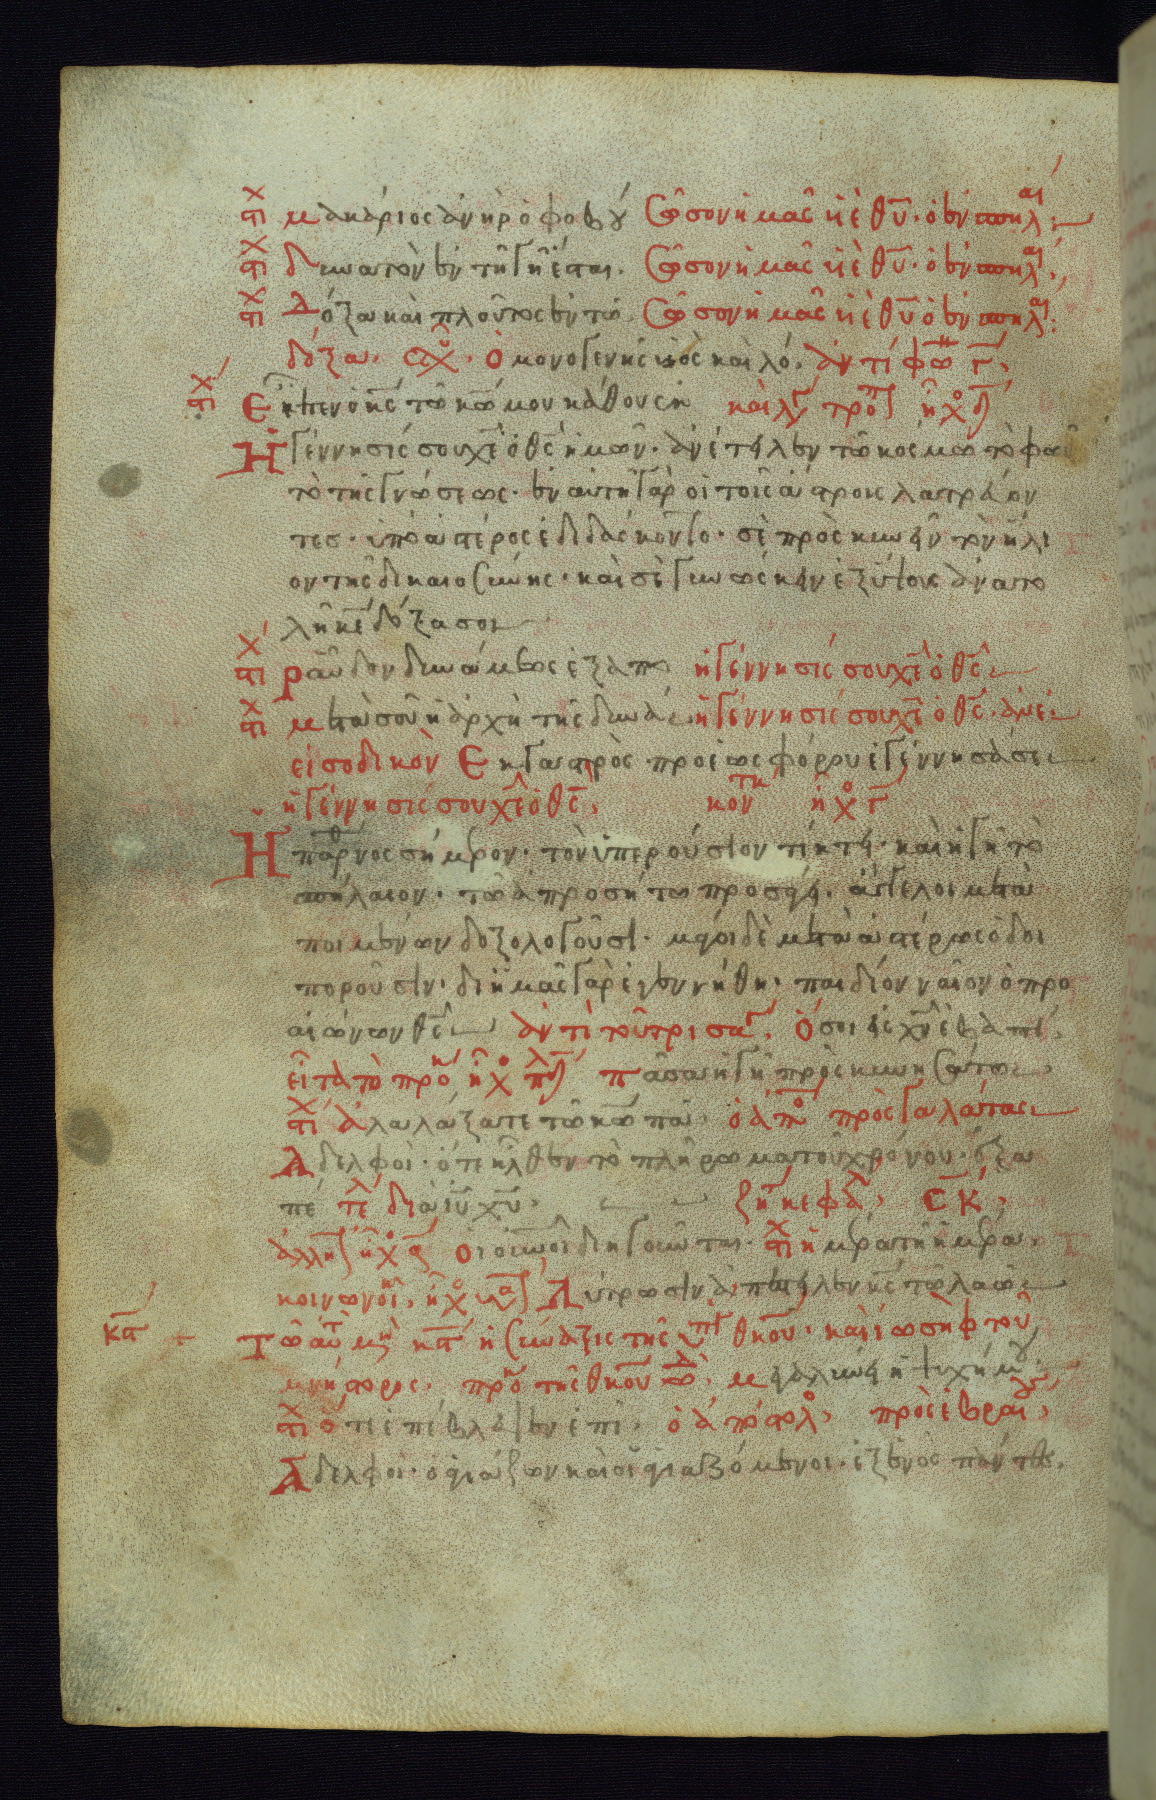 στχ μακάριος ἀνὴρ ὁ φοβού Σῶσον ἡμᾶς υἱὲ θῦ· ὁ ἐν σπηλαί
στχ δυνατὸν ἐν τῆ γῆ ἔσται. Σῶσον ἡμᾶς υἱὲ θῦ· ὁ ἐν σπηλαί
στχ Δόξα καὶ πλοῦτος ἐν τῶ. Σῶσον ἡμᾶς υἱὲ θῦ ὁ ἐν σπηλαί
δόξα. ὁ μονογενὴς υἱὸς καὶ λό. ἀντίφω γ
στχ Εἶπεν ὁ κς τῶ κω μου κάθου ἐκ καὶ λγ τρο ἦχο δ
Ἡ γέννησίς σου χε ὁ θς ἡμῶν· ἀνέτειλεν τῶ κόσμω τὸ φῶς
τὸ τῆς γνώσεως· ἐν αὐτῆ γὰρ οἱ τοῖς ἄστροις λατρεύον
τες· ὑπὸ ἀστέρος ἐδιδάσκοντο· σὲ προσκυνεῖν τὸν ἥλι
ον τῆς δικαιοσύνης· καὶ σὲ γινώσκειν ἐξ ὕψους ἀνατο
λὴν κε δόξα σοι
στχ ῥάβδον δυνάμεως ἐξαπο ἡ γέννησίς σου χε ὁ θς
στχ μετὰ σοῦ ἡ ἀρχὴ τῆς δυνά ἡ γέννησίς σου χε ὁ θς· ἀνέ
εἰσοδικὸν Ἐκ γαστρὸς πρὸ ἑωσφόρου ἐγέννησά σε
ἡ γέννησίς σου χε ὁ θς. κον ἦχο γ
Ἡ παρθνος σήμερον· τὸν ὑπερούσιον τίκτει· καὶ ἡ γῆ τὸ
σπήλαιον· τῶ ἀπροσήτω προσάγει. ἄγγελοι μετὰ
ποιμένων δοξολογοῦσι· μάγοι δὲ μετὰ ἀστέρος ὁδοι
ποροῦσιν· δι ἡμᾶς γὰρ ἐγεννήθη· παιδίον νέον ὁ προ
αἰώνων θς ἀντὶ τοῦ τρισαγ. Ὅσοι εἰς χν ἐβαπτί
εἶτα τὸ προκ ἦχο πλδ πᾶσα ἡ γῆ προσκυνησάτω
στχ ἀλαλάξατε τῶ κω πᾶ ὁ ἀπο πρὸς γαλάτας
Ἀδελφοὶ· ὅτε ἦλθεν τὸ πλήρωμα τοῦ χρόνου· ἐξα
πέ διὰ ιυ χυ· ζη κεφαλ
ἀλλη ἦχο α Οἱ οὐνοὶ διηγοῦνται· στχ ἡμέρα τῆ ἡμέρα.
κοινωνι. ἦχο Λύτρωσιν ἀπέστειλεν κς τῶ λαῶ
κς Τῶ αὐτ μη κς ἡ σύναξις τῆς ὑπ θκου· καὶ ἰωσὴφ τοῦ
μνήστορος. προκ τῆς θκου μεγαλύνει ἡ ψυχή μου
στχ ὅτι ἐπέβλεψεν ἐπὶ. ὁ ἀπόστολ πρὸς ἑβραί
Ἀδελφοὶ· ὁ ἁγιάζων καὶ οἱ ἁγιαζόμενοι· ἐξ ἑνὸς πάντες.